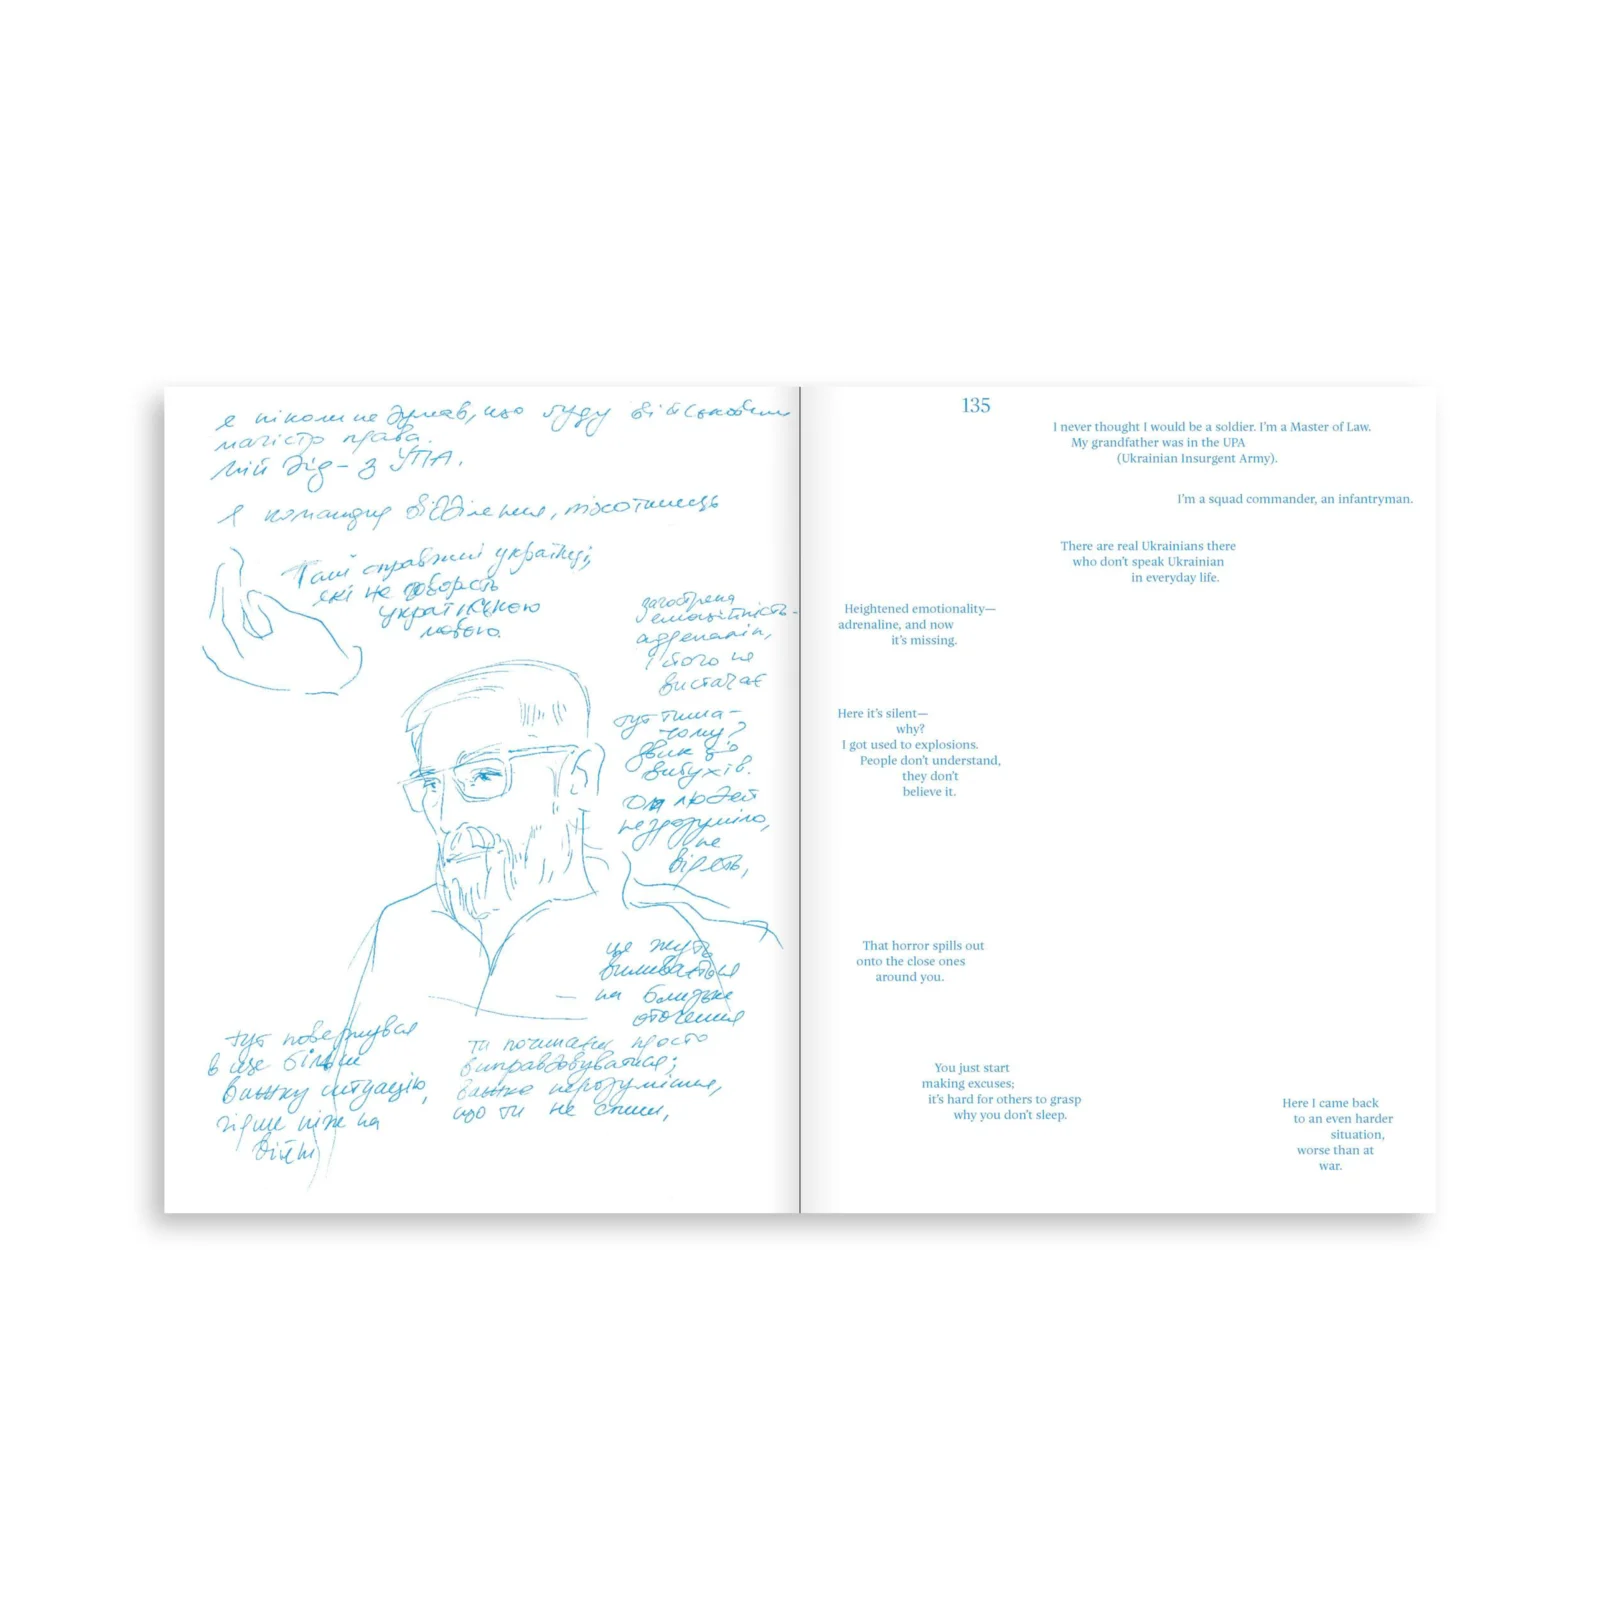 я ніколи не думав, що буду військовим
магістр права.
мій дід – з УПА.
Я командир відділення, піхотинець
Такі справжні українці,
які не говорять
українською
мовою.
загострена
емоційність –
адреналін,
і того не
вистачає
тут тиша –
чому?
звик до
вибухів.
Для людей
незрозуміло,
не
вірять,
ця жуть
виливається
на близьке
оточення
тут повернувся
в ще більш
важку ситуацію,
гірше ніж на
війні
ти починаєш просто
виправдовуватися;
важко
що ти не спиш,
135
I never thought I would be a soldier. I'm a Master of Law.
My grandfather was in the UPA
(Ukrainian Insurgent Army).
I'm a squad commander, an infantryman.
There are real Ukrainians there
who don't speak Ukrainian
in everyday life.
Heightened emotionality—
adrenaline, and now
it's missing.
Here it's silent—
why?
I got used to explosions.
People don't understand,
they don't
believe it.
That horror spills out
onto the close ones
around you.
You just start
making excuses;
it's hard for others to grasp
why you don't sleep.
Here I came back
to an even harder
situation,
worse than at
war.